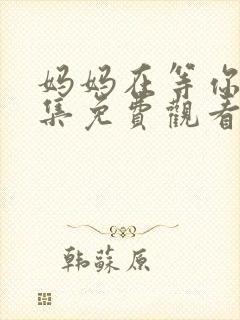 妈妈在等你
集免費觀看
韩蘇原